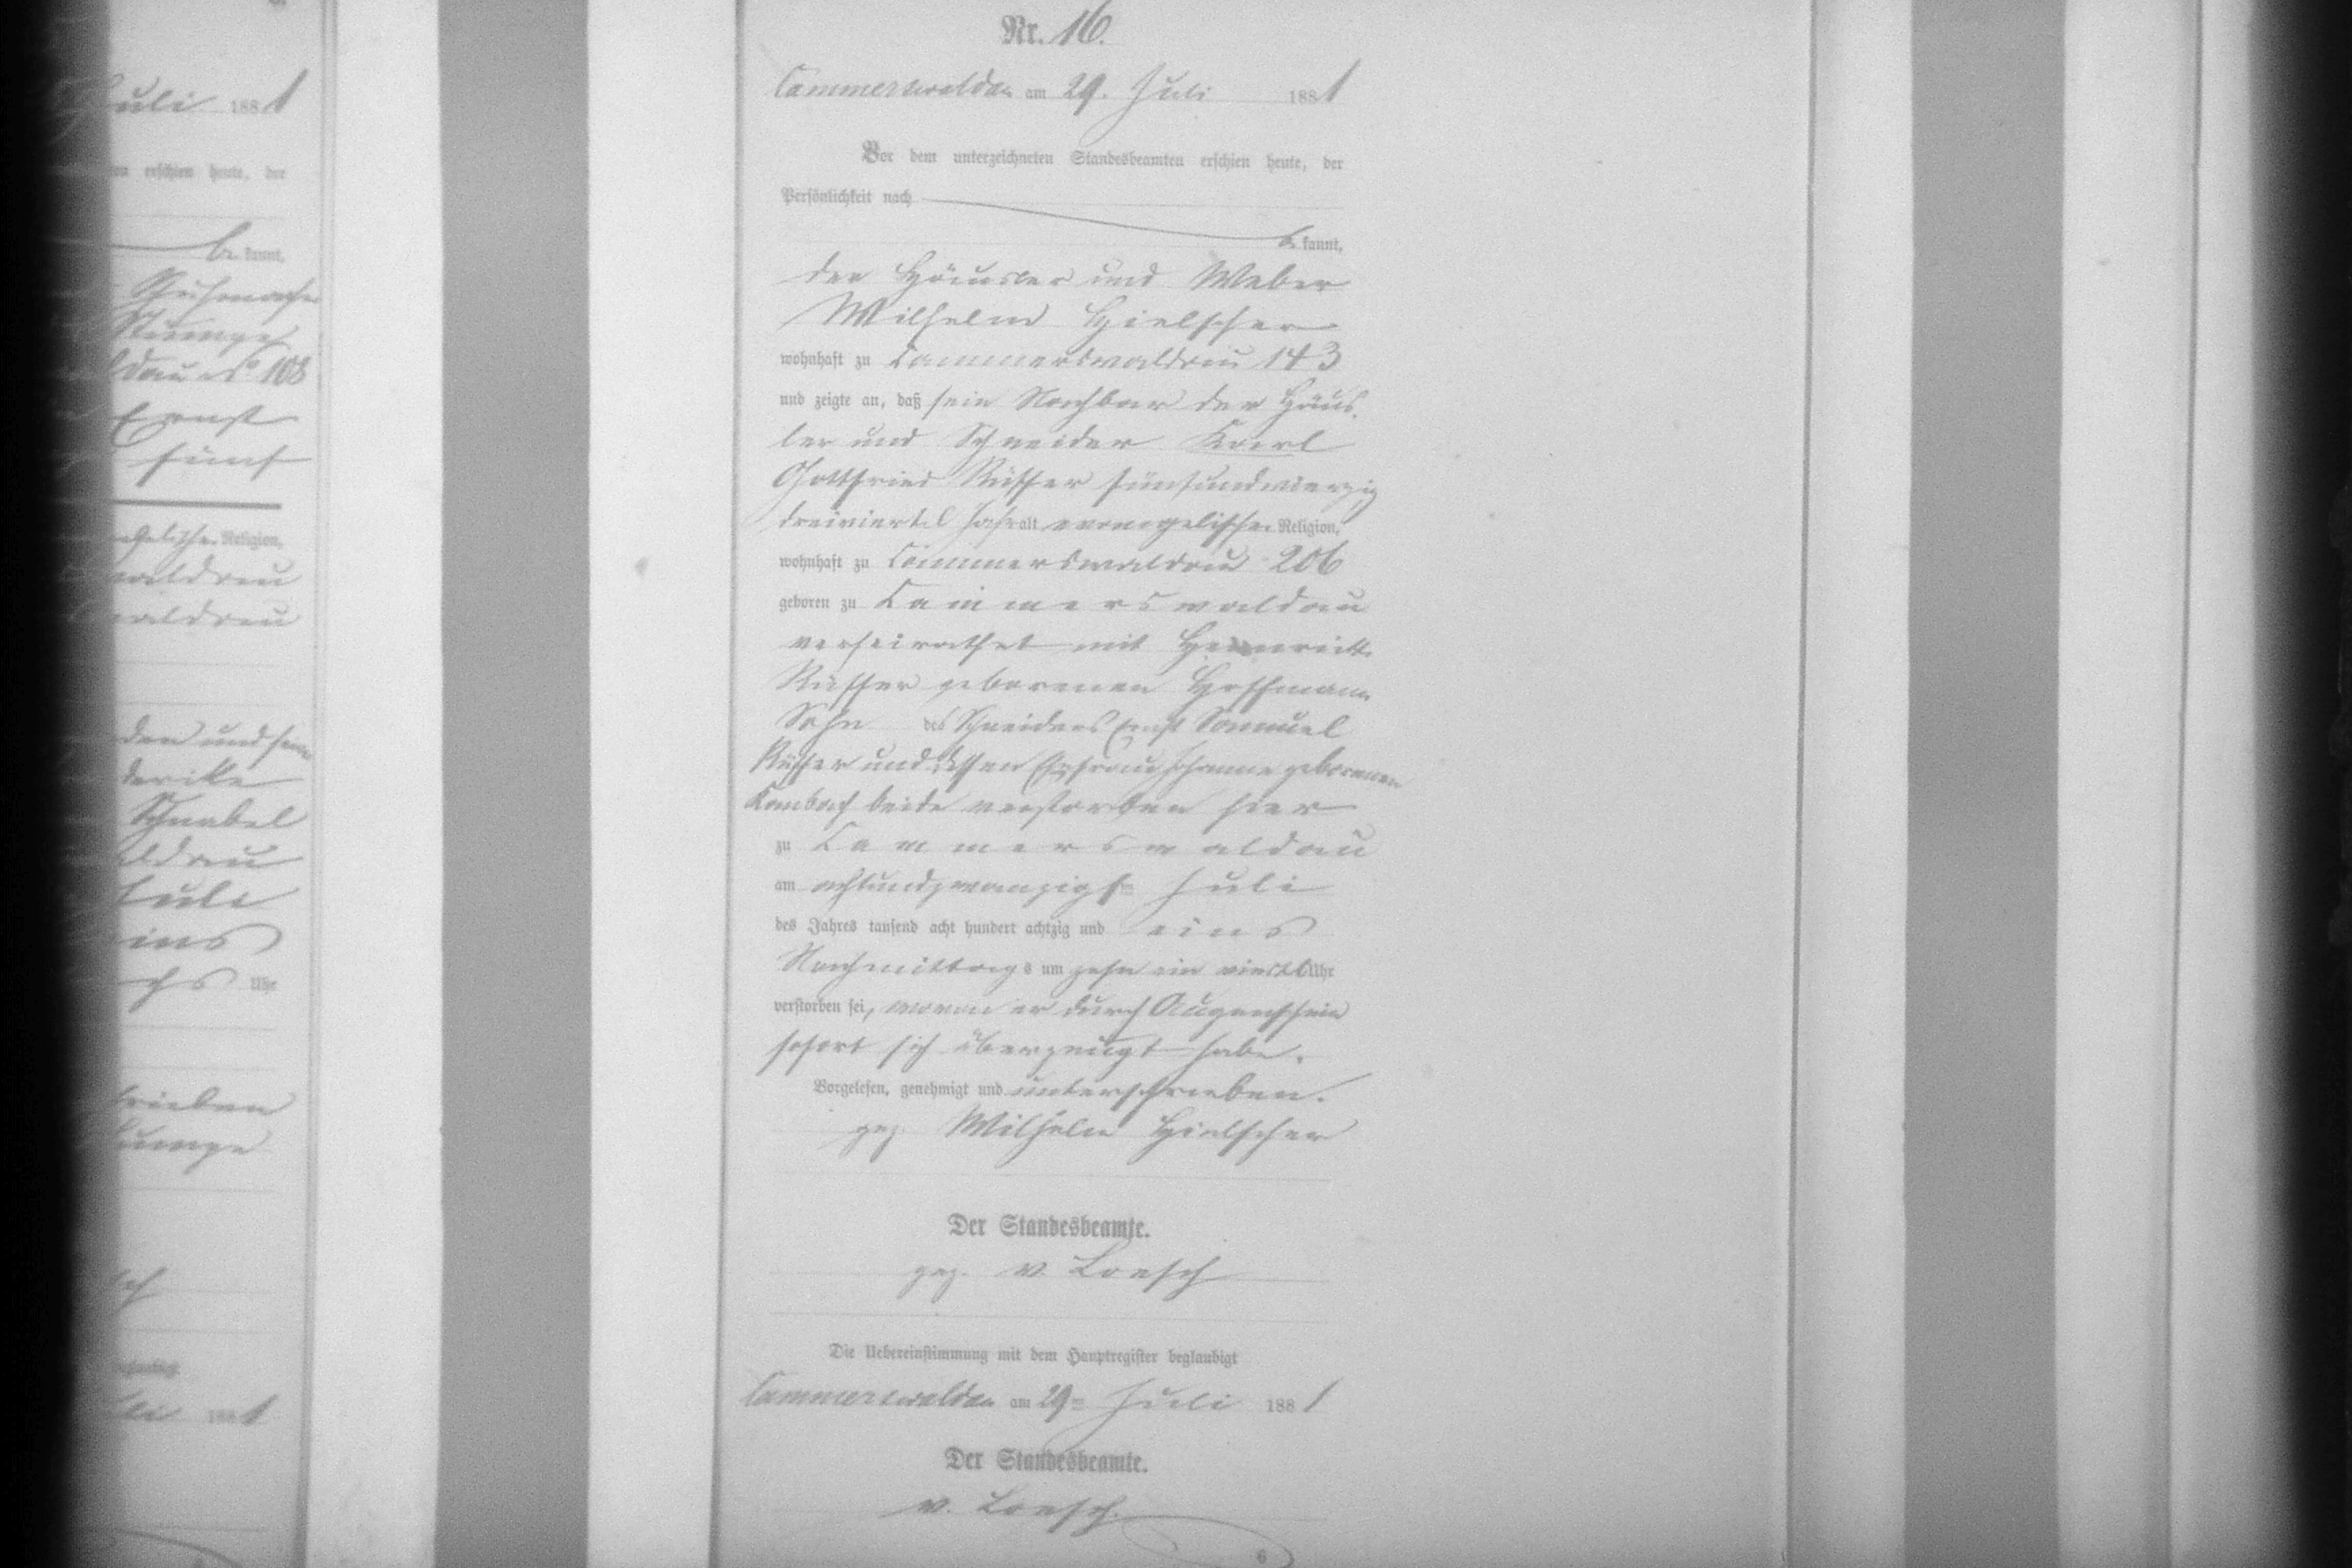 Juli 1881
erschien heute, der
be kannt,
108
Ernst
fünf
Religion,
waldau
waldau
den und
Schnabel
Juli
eins
Uhr
Juli 1881
Nr. 16.
Cammerswaldau am 29. Juli 1881
Vor dem unterzeichneten Standesbeamten erschien heute, der
Persönlichkeit nach
be kannt,
der Häusler und Weber
Wilhelm Hielscher
wohnhaft zu Cammerswaldau 143
und zeigte an, daß sein Nachbar der Häus-
ler und Schneider Karl
Gottfried Rüffer fünfundvierzig
dreiviertel Jahr alt evangelischer Religion,
wohnhaft zu Cammerswaldau 206
geboren zu Cammerswaldau
verheirathet mit
Rüffer geborenen Hoffmann
Sohn des Schneiders Ernst Samuel
Rüffer und dessen Ehefrau Johanne geborenen
beide verstorben hier
zu Cammerswaldau
am achtundzwanzigsten Juli
des Jahres tausend acht hundert achtzig und eins
Nachmittags um zehn ein viertel Uhr
verstorben sei, wovon er durch Augenschein
sofort sich überzeugt habe.
Vorgelesen, genehmigt und unterschrieben.
gez. Wilhelm Hielscher
Der Standesbeamte.
gez. v. Loesch
Die Uebereinstimmung mit dem Hauptregister beglaubigt
Cammerswaldau am 29ten Juli 1881
Der Standesbeamte.
v. Loesch.
6